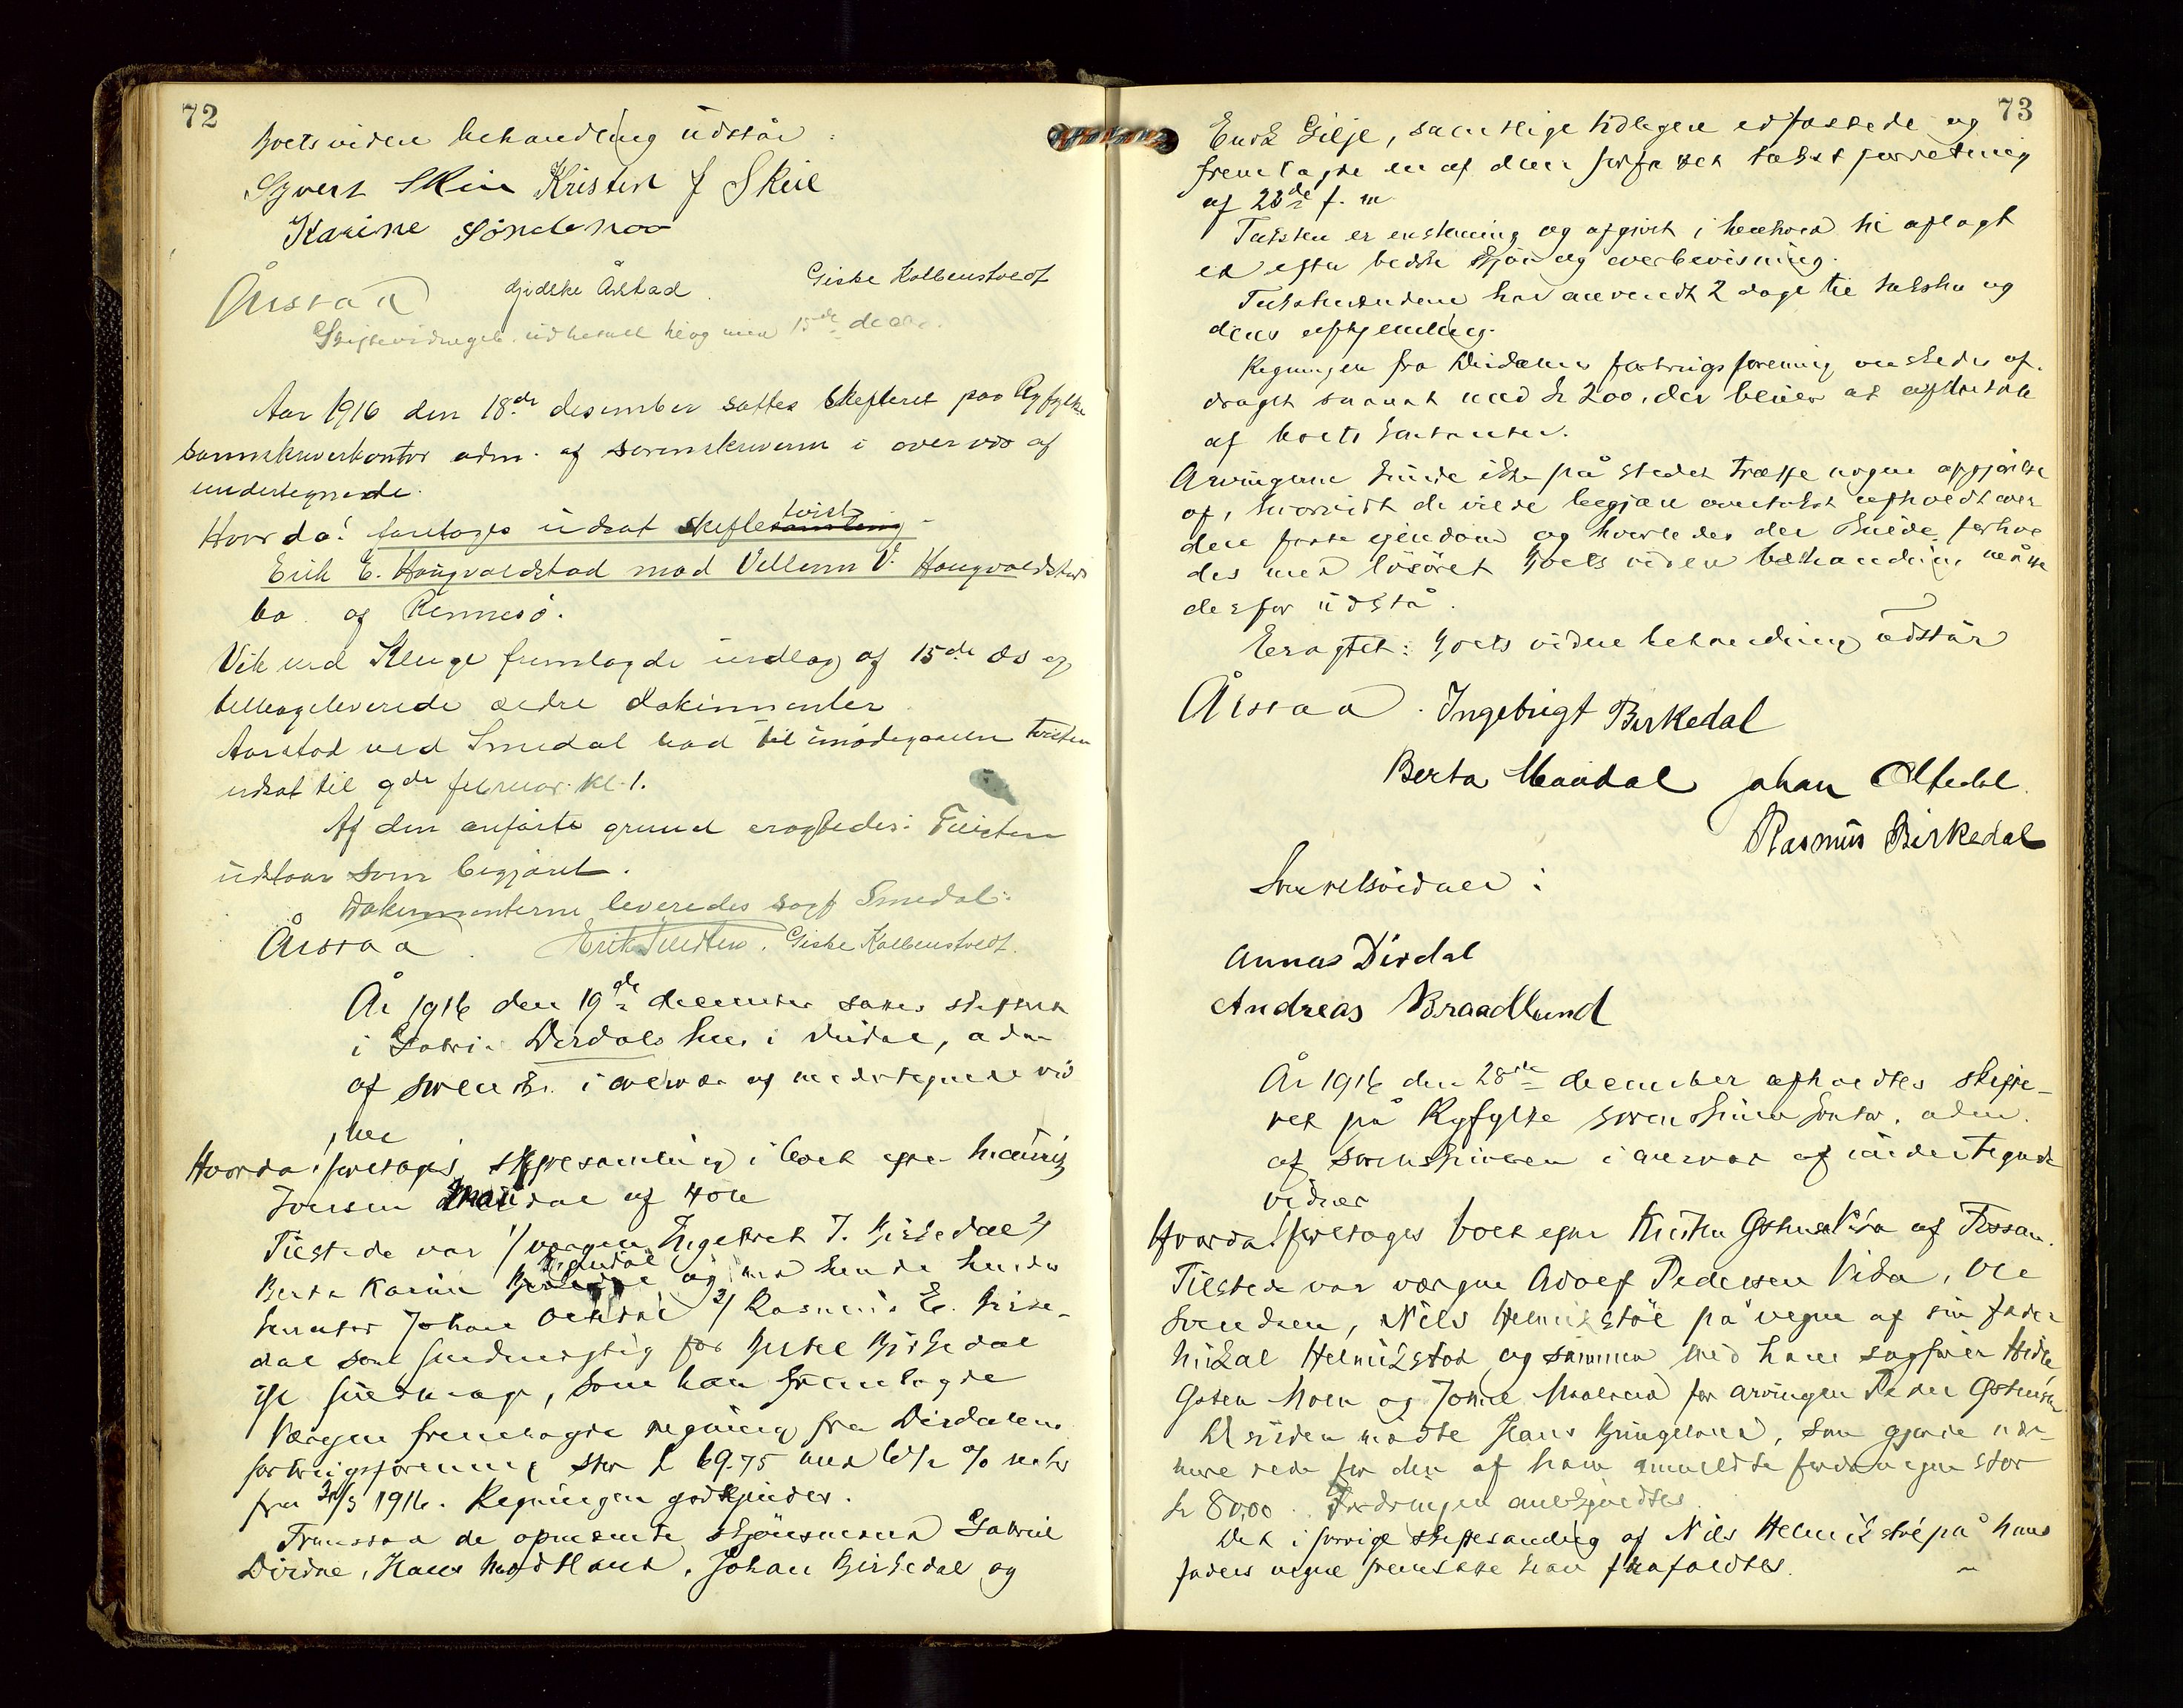 72
Boets videre behandling udstår:
Syvert Skeie Kristen J Skeie
Karine Söndenaa
Årstad Gjidske Årstad. Giske Kolbenstvedt
Skiftevidnegeb. udbetalt til og med 15de decbr.
Aar 1916 den 18de desember sattes skifteret paa Ryfylke
sorenskriverkontor adm. af sorenskriveren i overvær af
undertegnede.
Hvorda: foretoges udsat skiftetvist
Erik E. Haugvaldstad mod Vellum V. Haugvaldstads
bo af Rennesö.
Vik ved Kluge fremlagde indlæg af 15de ds og
tilbageleverede ældre dokumenter.
Aarstad ved Smedal bad til imödegaaelse tvisten
udsat til 9de februar kl. 1.
Af den anförte grund eragtedes: Tvisten
udstaar som begjæret.
Dokumenterne leveredes sagf Smedal.
Årstad. Giske Kolbenstvedt.
År 1916 den 19de december sattes skifteret
i Gabriel Dirdals hus i Dirdal, adm
af sorenskr. i overvær af medundertegnede vid
ner
Hvorda! foretoges skiftesamling i boet efter
Jonsen Maudal af 4öre
Tilstede var 1/ værgen Ingebret J. Birkedal 2/
Berta Karine Maudal og med hende hendes
kurator Johan Oltedal 3/ Rasmus E. Birke-
dal som fuldmægtig for Bertel Birkedal
if fuldmagt, som han fremlagde
Værgen fremlagde regning fra Dirdalens
forbrugsforening stor kr 69.75 med % renter
fra 31/3 1916. Regningen godkjendes.
Fremstod de opnævnte skjönsmænd Gabriel
Dirdal, Hans Madtland, Johan Birkedal og
73
Enok Gilje, samtlige tidligere edfæstede og
fremlagde en af dem forfattet takst forretning
af 23de f. m.
Taksten er enstemmig og afgivet i henhold til aflagt
ed efter bedste skjön og overbevisning.
Takstmændene har anvendt 2 dage til taksten og
dens afhjemling.
Regningen fra Dirdalens forbrugsforening önskedes af
draget saavidt med kr 200, der bliver at afbetale
af boets kontanter.
Arvingerne kunde ikke på stedet træffe nogen afgjörelse
af, hvorvidt de vilde begjære overtakst afholdt over
den faste eiendom og hvorledes der skulde forhol
des med lösöret. Boets videre behandling måtte
derfor udstå.
Eragtet: Boets videre behandling udstår
Årstad. Ingebrigt Birkedal
Berta Maudal Johan Oltedal.
Rasmus Birkedal
Som retsvidner:
Annas Dirdal
Andreas Braadlund
År 1916 den 28de december afholdtes skifte-
ret på Ryfylke sorenskriverkontor, adm.
af sorenskriveren i overvær af undertegnede
vidner
Hvorda! foretoges boet efter Kirsten Östensen Vika af Fossan.
Tilstede var værgen Adolf Pedersen Vika, Ole
Svendsen, Nils Helmikstöl på vegne af sin fader
Mikal Helmikstöl og sammen med ham sagförer Hidle
Östen Moen og Jonas Maaland for arvingen Peder Östensen.
Desuden mödte Hans Bringeland, som gjorde nær-
mere rede for den af ham anmeldte fordringen stor
kr 80,00. Fordringen anerkjendtes.
Det i forrige skiftesamling af Nils Helmikstöl på hans
faders vegne fremsatte krav frafaldtes.